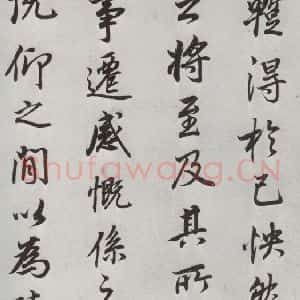 得於己怏然
之將至及其所
事遷感慨係之
俛仰之間以為
Shufawang.CN